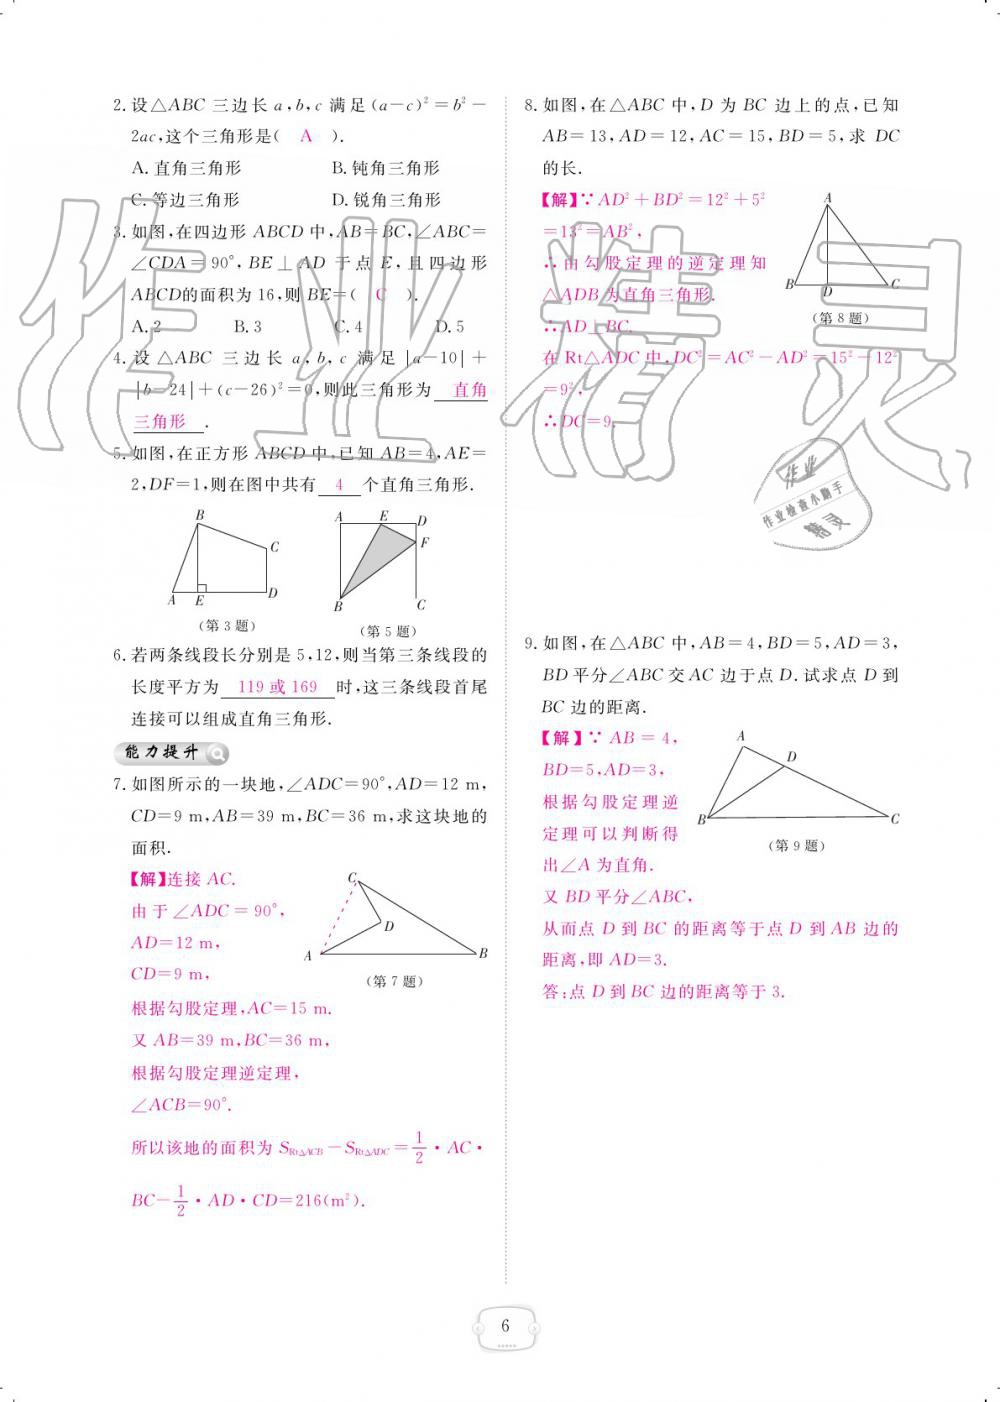 2. 设△ABC 三边长 a,b,c 满足(a-c)²=b²-
2ac,这个三角形是( A ).
A. 直角三角形 B. 钝角三角形
C. 等边三角形 D. 锐角三角形
3. 如图,在四边形 ABCD 中,AB=BC,∠ABC=
∠CDA=90°,BE⊥AD 于点 E,且四边形
ABCD的面积为 16,则 BE=( C ).
A. 2 B. 3 C. 4 D. 5
4. 设 △ABC 三边长 a,b,c 满足 |a-10|+
|b-24|+(c-26)²=0,则此三角形为 直角
三角形 .
5. 如图,在正方形 ABCD 中,已知 AB=4,AE=
2,DF=1,则在图中共有 4 个直角三角形.
B
C
A E D
(第 3 题)
A E D
F
B C
(第 5 题)
6. 若两条线段长分别是 5,12,则当第三条线段的
长度平方为 119 或 169 时,这三条线段首尾
连接可以组成直角三角形.
能力提升
7. 如图所示的一块地,∠ADC=90°,AD=12 m,
CD=9 m,AB=39 m,BC=36 m,求这块地的
面积.
【解】连接 AC.
由于∠ADC=90°,
AD=12 m,
CD=9 m,
C
D
A B
(第 7 题)
根据勾股定理,AC=15 m.
又 AB=39 m,BC=36 m,
根据勾股定理逆定理,
∠ACB=90°.
所以该地的面积为 S_{Rt△ACB}-S_{Rt△ADC}=1/2·AC·
BC-1/2·AD·CD=216(m²).
8. 如图,在△ABC 中,D 为 BC 边上的点,已知
AB=13,AD=12,AC=15,BD=5,求 DC
的长.
【解】∵AD²+BD²=12²+5²
=13²=AB²,
∴由勾股定理的逆定理知
△ADB 为直角三角形.
∴AD⊥BC.
A
B D C
(第 8 题)
在 Rt△ADC 中,DC²=AC²-AD²=15²-12²
=9²,
∴DC=9.
作业
作业检查小助手
精灵
9. 如图,在△ABC 中,AB=4,BD=5,AD=3,
BD 平分∠ABC 交 AC 边于点 D. 试求点 D 到
BC 边的距离.
【解】∵AB=4,
BD=5,AD=3,
根据勾股定理逆
定理可以判断得
出∠A 为直角.
A
D
B C
(第 9 题)
又 BD 平分∠ABC,
从而点 D 到 BC 的距离等于点 D 到 AB 边的
距离,即 AD=3.
答:点 D 到 BC 边的距离等于 3.
作业精灵
6